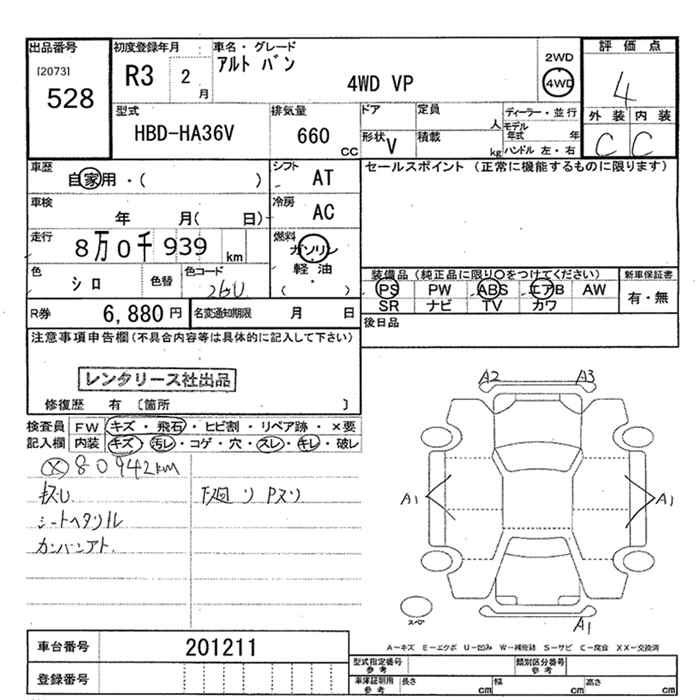 出品番号
[2073]
528
初度登録年月
R3 2 月
車名・グレード
アルト バン
4WD VP
2WD
4WD
評価点
4
外装 内装
C C
型式
HBD-HA36V
排気量
660 CC
ドア
定員 人
形状 V
積載 kg
ディーラー・並行
モデル年式 年
ハンドル 左・右
車歴
自家用・( )
シフト AT
セールスポイント (正常に機能するものに限ります)
車検
年 月( 日)
冷房 AC
走行
8万0千939 km
燃料
ガソリン
軽油
・
( )
色 シロ
色替
色コード 26U
装備品(純正品に限り〇をつけてください)
新車保証書
PS PW ABS エアB AW
SR ナビ TV カワ
有・無
R券 6,880 円
名変通知期限 月 日
後日品
注意事項申告欄(不具合内容等は具体的に記入して下さい)
レンタリース社出品
修復歴 有 〔箇所 〕
検査員記入欄
FW キズ・飛石・ヒビ割・リペア跡・×要
内装 キズ・汚レ・コゲ・穴・スレ・キレ・破レ
Ⓧ 80942km
シートヘタリル
カンバンアト.
A2 A3
A1 A1
A1
スペア
A-キズ E-エクボ U-凹み W-補修跡 S-サビ C-腐食 XX-交換済
車台番号 201211
登録番号
型式指定番号 参考
類別区分番号 参考
車庫証明用 参考
長さ cm
幅 cm
高さ cm